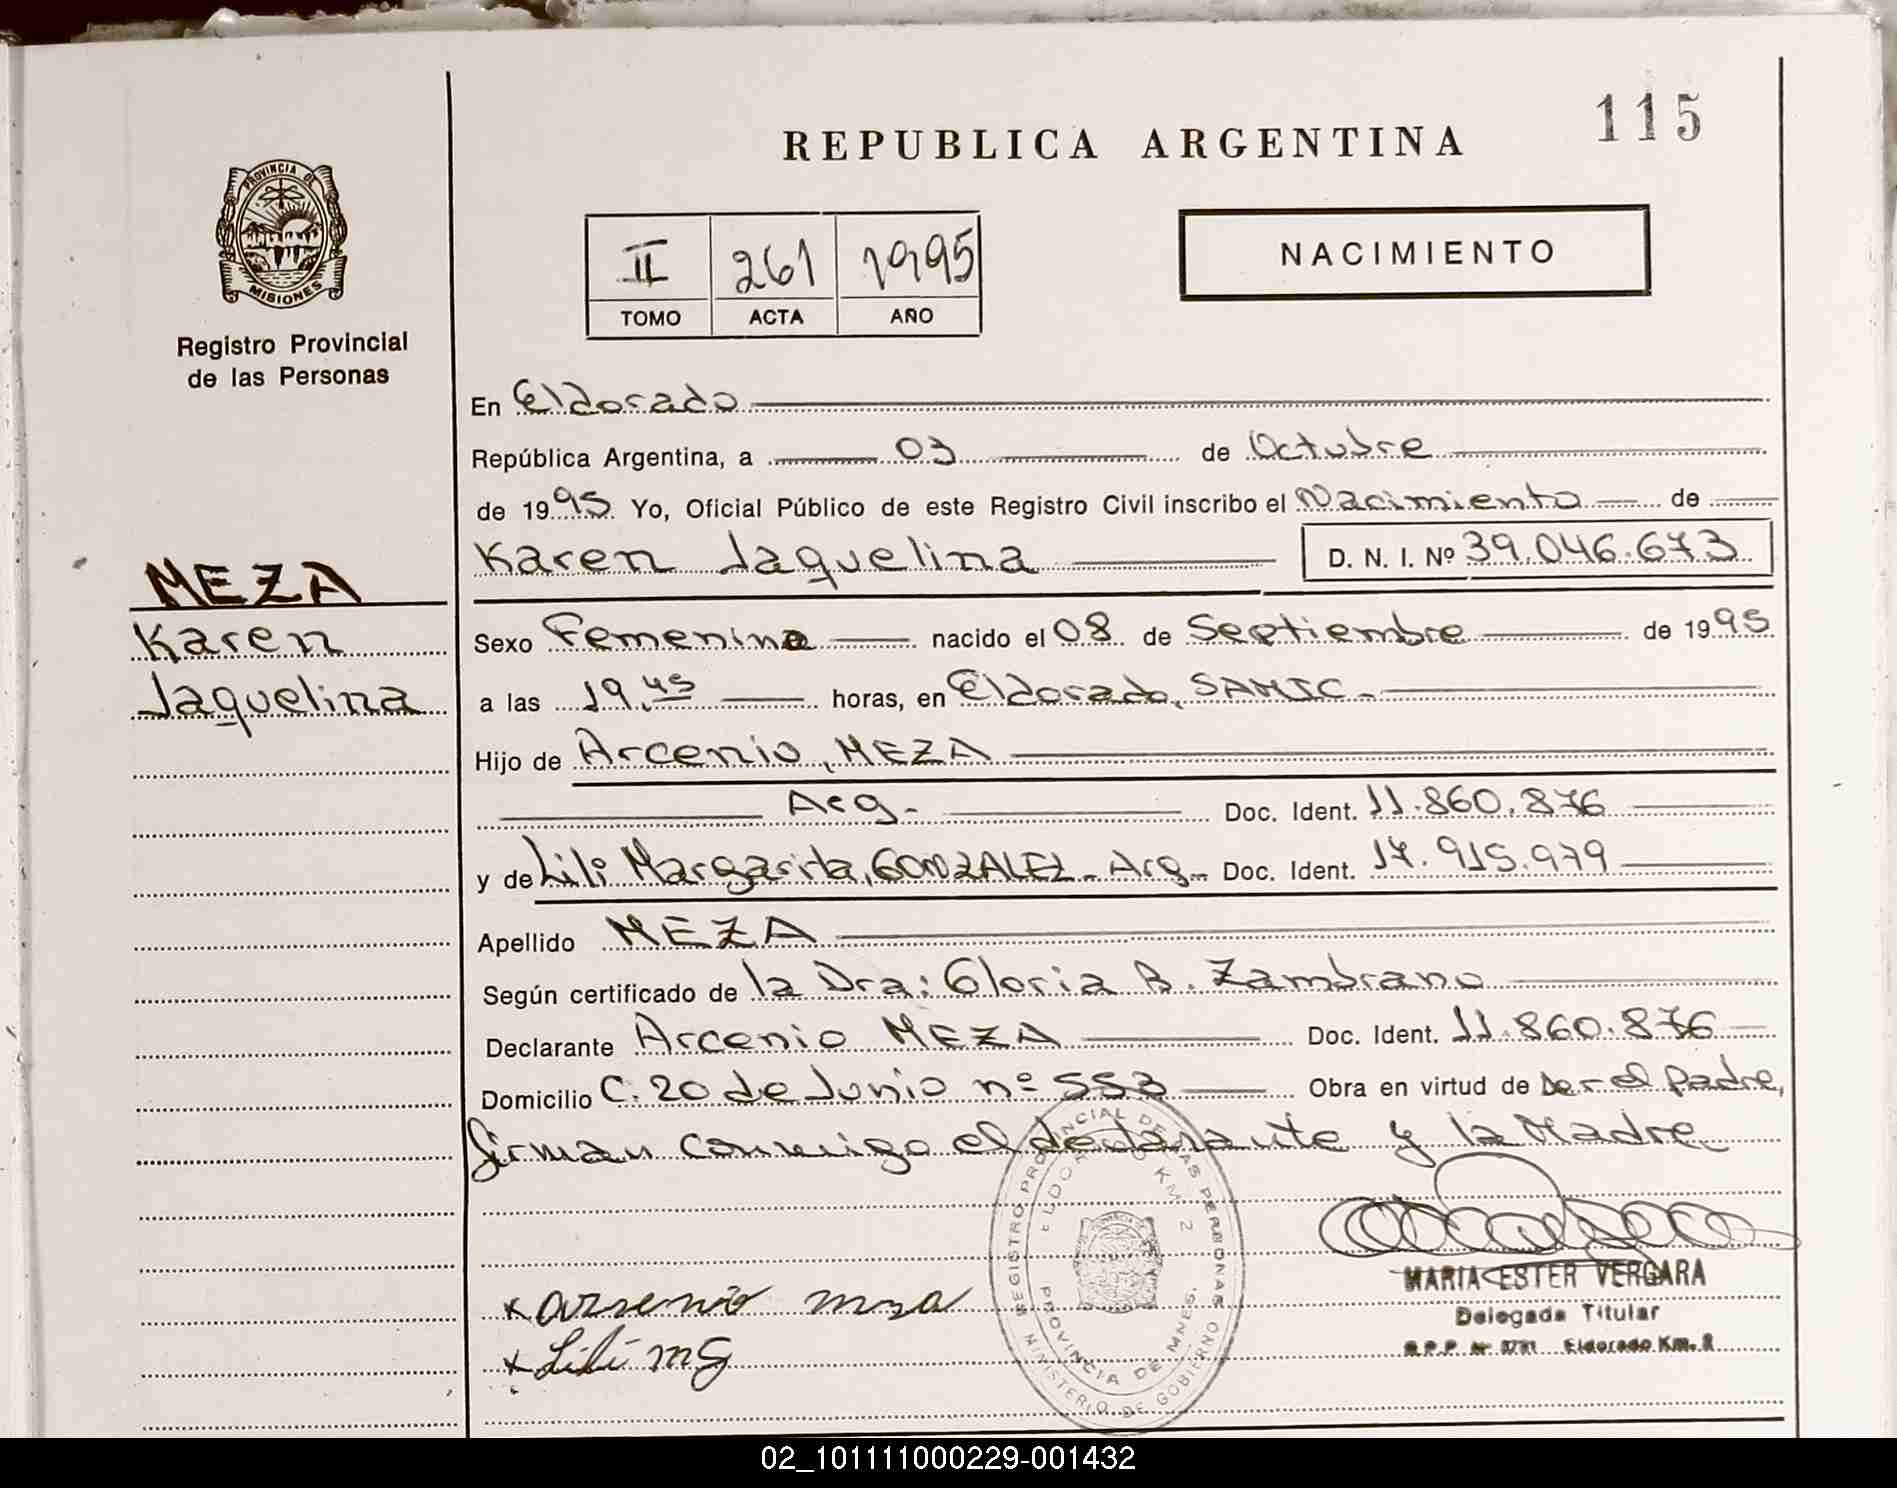 115
REPUBLICA ARGENTINA
PROVINCIA DE
MISIONES
Registro Provincial
de las Personas
II 261 1995
TOMO ACTA AÑO
NACIMIENTO
En Eldorado
República Argentina, a 03 de Octubre
de 1995 Yo, Oficial Público de este Registro Civil inscribo el Nacimiento de
Karen Jaquelina D. N. I. Nº 39.046.673
MEZA
Karen
Jaquelina
Sexo Femenino nacido el 08 de Septiembre de 1995
a las 19,45 horas, en Eldorado, SAMIC.-
Hijo de Arcenio, MEZA
Arg.- Doc. Ident. 11.860.876
y de Lili Margarita, GONZALEZ - Arg.- Doc. Ident. 17.915.979
Apellido MEZA
Según certificado de la Dra: Gloria B. Zambrano
Declarante Arcenio MEZA Doc. Ident. 11.860.876
Domicilio C. 20 de Junio nº 553 Obra en virtud de ser el padre,
firman conmigo el declarante y la Madre
REGISTRO PROVINCIAL DE LAS PERSONAS
KM 2
PROVINCIA DE MNES.
MINISTERIO DE GOBIERNO
x arsenio meza
x Lili m G
MARIA ESTER VERGARA
Delegada Titular
Eldorado Km. 2
02_101111000229-001432